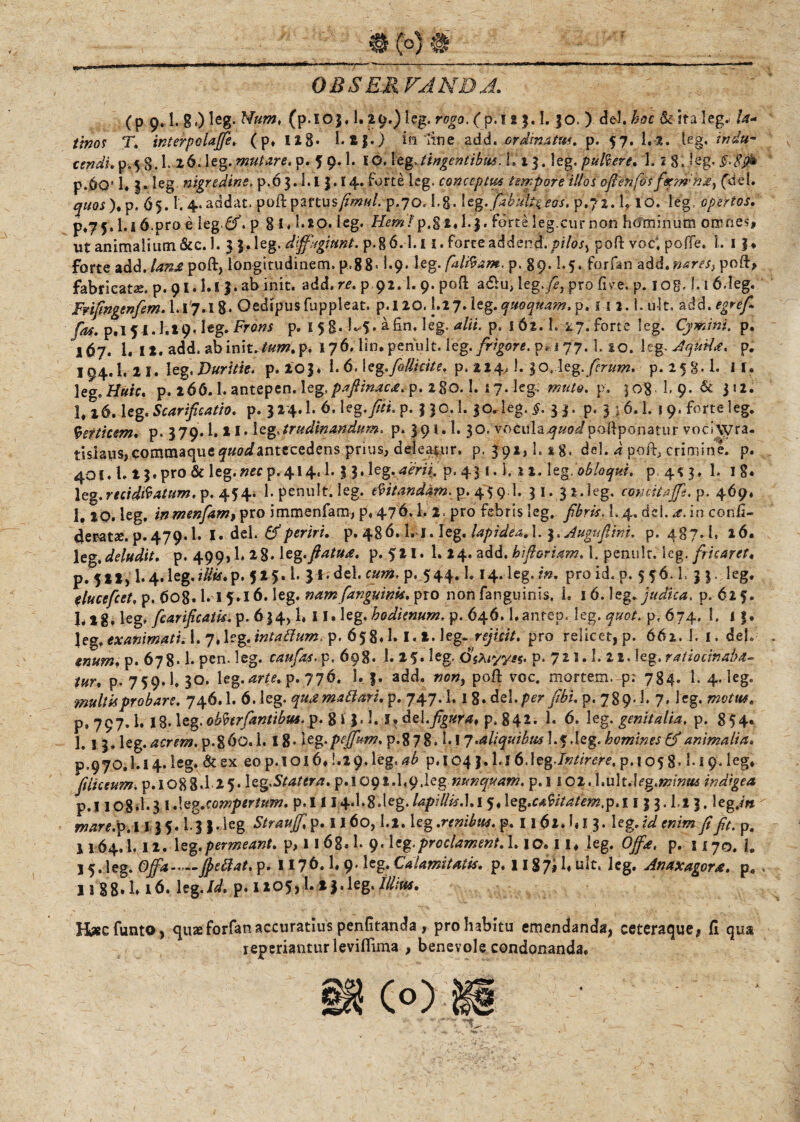 (o)
OBSERVANDA.
(p 9. l. 8.) leg. Num, (p.103, l. 29.) leg. rogo. (p. 123. l. 30. ) del. hoc & ita leg. la-
tinos T. interpolasse. (p. 128. l. 23.) in fine add. ordinatus. p. 57. l. 2. leg. indu-
cendi. p. 58. l. 26. leg. mutare. p. 59. l. 10. leg. tingentibus. l. 13. leg. pulvere. l. 28. leg. §.
p.60. l. 3. leg nigredine. p.63. l. 13.14. forte leg. conceptus tempore illos ostensos (del.
quos). p. 65. l. 4. addat. post partus simul. p.70. l.8. leg. fabulis eos. p.72. l. 10. leg. opertos.
p.75. l.16.pro e leg &. p 81. l.20. leg. Hem! p.82. l.3. forte leg.cur non hominum omnes,
ut animalium &c. l. 33.leg. diffugiunt. p.86. l.11. forte addend. pilos, post voc. posse. l. 13.
forte add. lanæ post, longitudinem. p.88. l.9. leg. falsam. p. 89. l.5. forsan add. nares, post,
fabricatæ. p. 91. l.13. ab init. add. re. p 92. l. 9. post actu, leg. se, pro sive. p. 108. l.16.leg.
Frisingensem. l.17.18. Oedipus suppleat. p.120. l.27. leg. quoquam. p. 112. l. ult. add. egres-
sas. p.151. l.29. leg. Frons p. 158. l.5. à fin. leg. alii. p. 162. l. 27. forte leg. Cymini. p.
167. l. 12. add. ab init. tum. p. 176. lin. penult. leg. frigore. p. 177. l. 20. leg. Aquilæ. p.
194. l. 21. leg. Duritie. p. 203. l. 6. leg. follicite. p. 224. l. 30. leg. serum. p. 258. l. 11.
leg. Huic. p. 266. l. antepen. leg. pastinacæ. p. 280. l. 17. leg. muto. p. 308 l. 9. & 312.
l. 26. leg. Scarificatio. p. 324. l. 6. leg. siti. p. 330. l. 30. leg. §. 33. p. 336. l. 19. forte leg.
Verticem. p. 379. l. 21. leg. trudinandum. p. 391. l. 30. vocula quod postponatur voci
tisiaus, commaque quod antecedens prius, deleatur. p. 392, l. 28. del. à post, crimine. p.
401. l. 23. pro & leg. nec p. 414. l. 33. leg. aërii. p. 431. l. 22. leg. obloqui. p 453. l. 18.
leg. recidivatum. p. 454. l. penult. leg. evitandam. p. 459 l. 31. 32. leg. concitasse. p. 469.
l. 20. leg. in mensam, pro immensam, p. 476. l. 2. pro febris leg. fibris. l. 4. del. æ. in consi-
deratæ. p. 479. l. 1. del. & periri. p. 486. l. 1. leg. lapidea. l. 3. Augustini. p. 487. l. 26.
leg. deludit. p. 499, l. 28. leg. statua. p. 521. l. 24. add. historiam. l. penult. leg. fricaret.
p. 522, l. 4. leg. illis. p. 525. l. 31. del. cum. p. 544. l. 14. leg. in. pro id. p. 556. l. 33. leg.
elucescet. p. 608. l. 15.16. leg. nam sanguinis. pro non sanguinis. l. 16. leg. judica. p. 625.
l. 28. leg. scarificatis. p. 634, l. 11. leg. hodienum. p. 646. l. antep. leg. quot. p. 674. l. 13.
leg. exanimati. l. 7. leg. intactum. p. 658. l. 1. 2. leg. rejicit. pro relicet, p. 662. l. 1. del.
enum. p. 678. l. pen. leg. causas. p. 698. l. 25. leg. p. 721. l. 22. leg. ratiocinaba-
tur. p. 759. l. 30. leg. arte. p. 776. l. 3. add. non, post voc. mortem. p. 784. l. 4. leg.
multis probare. 746. l. 6. leg. quæ mactari. p. 747. l. 18. del. per sibi. p. 789. l. 7. leg. motus.
p. 797. l. 18. leg. obversantibus. p. 813. l. 1. del. figura. p. 842. l. 6. leg. genitalia. p. 854.
l. 13. leg. acrem. p.860. l. 18. leg. pessum. p.878. l.17.aliquibus l.5.leg. homines & animalia.
p.970. l.14. leg. & ex eo p.1016. l.29. leg. ab p.1043. l.16.leg. Intirere. p.1058. l.19. leg.
siliceum. p.1088. l 25. leg. Statera. p.1092. l.9.leg nunquam. p. 1102. l.ult.leg.minus indigea
p.1108. l.31.leg.compertum. p.1114.l.8.leg. lapillis.l.15. leg.cavitatem.p.1133. l.23. leg.in
mare.p.1135. l.33.leg Strauss. p. 1160, l.2. leg.renibus. p. 1162. l.13. leg. id enim si fit. p.
1164. l. 12. leg. permeant. p, 1168. l. 9. leg. proclament. l. 10. 11. leg. Offæ. p. 1170. l.
15. leg. Offa----spectat. p. 1176. l. 9. leg. Calamitatis. p. 1187, l. ult. leg. Anaxagoræ. p.
1188. l. 16. leg. Id. p. 1205, l. 23. leg. Illius.
Hæc sunto, quæ forsan accuratius pensitanda, pro habitu emendanda, ceteraque, si qua
reperiantur levissima, benevole condonanda.
(o)